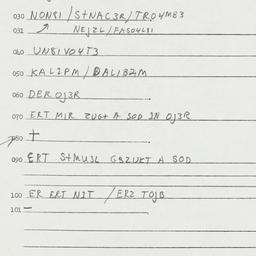 030 NON81 / StNAC3R / TRO4M83
031 ↗ NEJ2L / FASO4L81
040 UN81VO4T3
050 KAL2PM / DAL182M
060 DER OJ3R
070 ERT MIR ZUGT A SOD IN OJ3R
080 +
090 ERT StMUSL GSZUKT A SOD
100 ER ERT NIT / ER2 TOJB
101 –